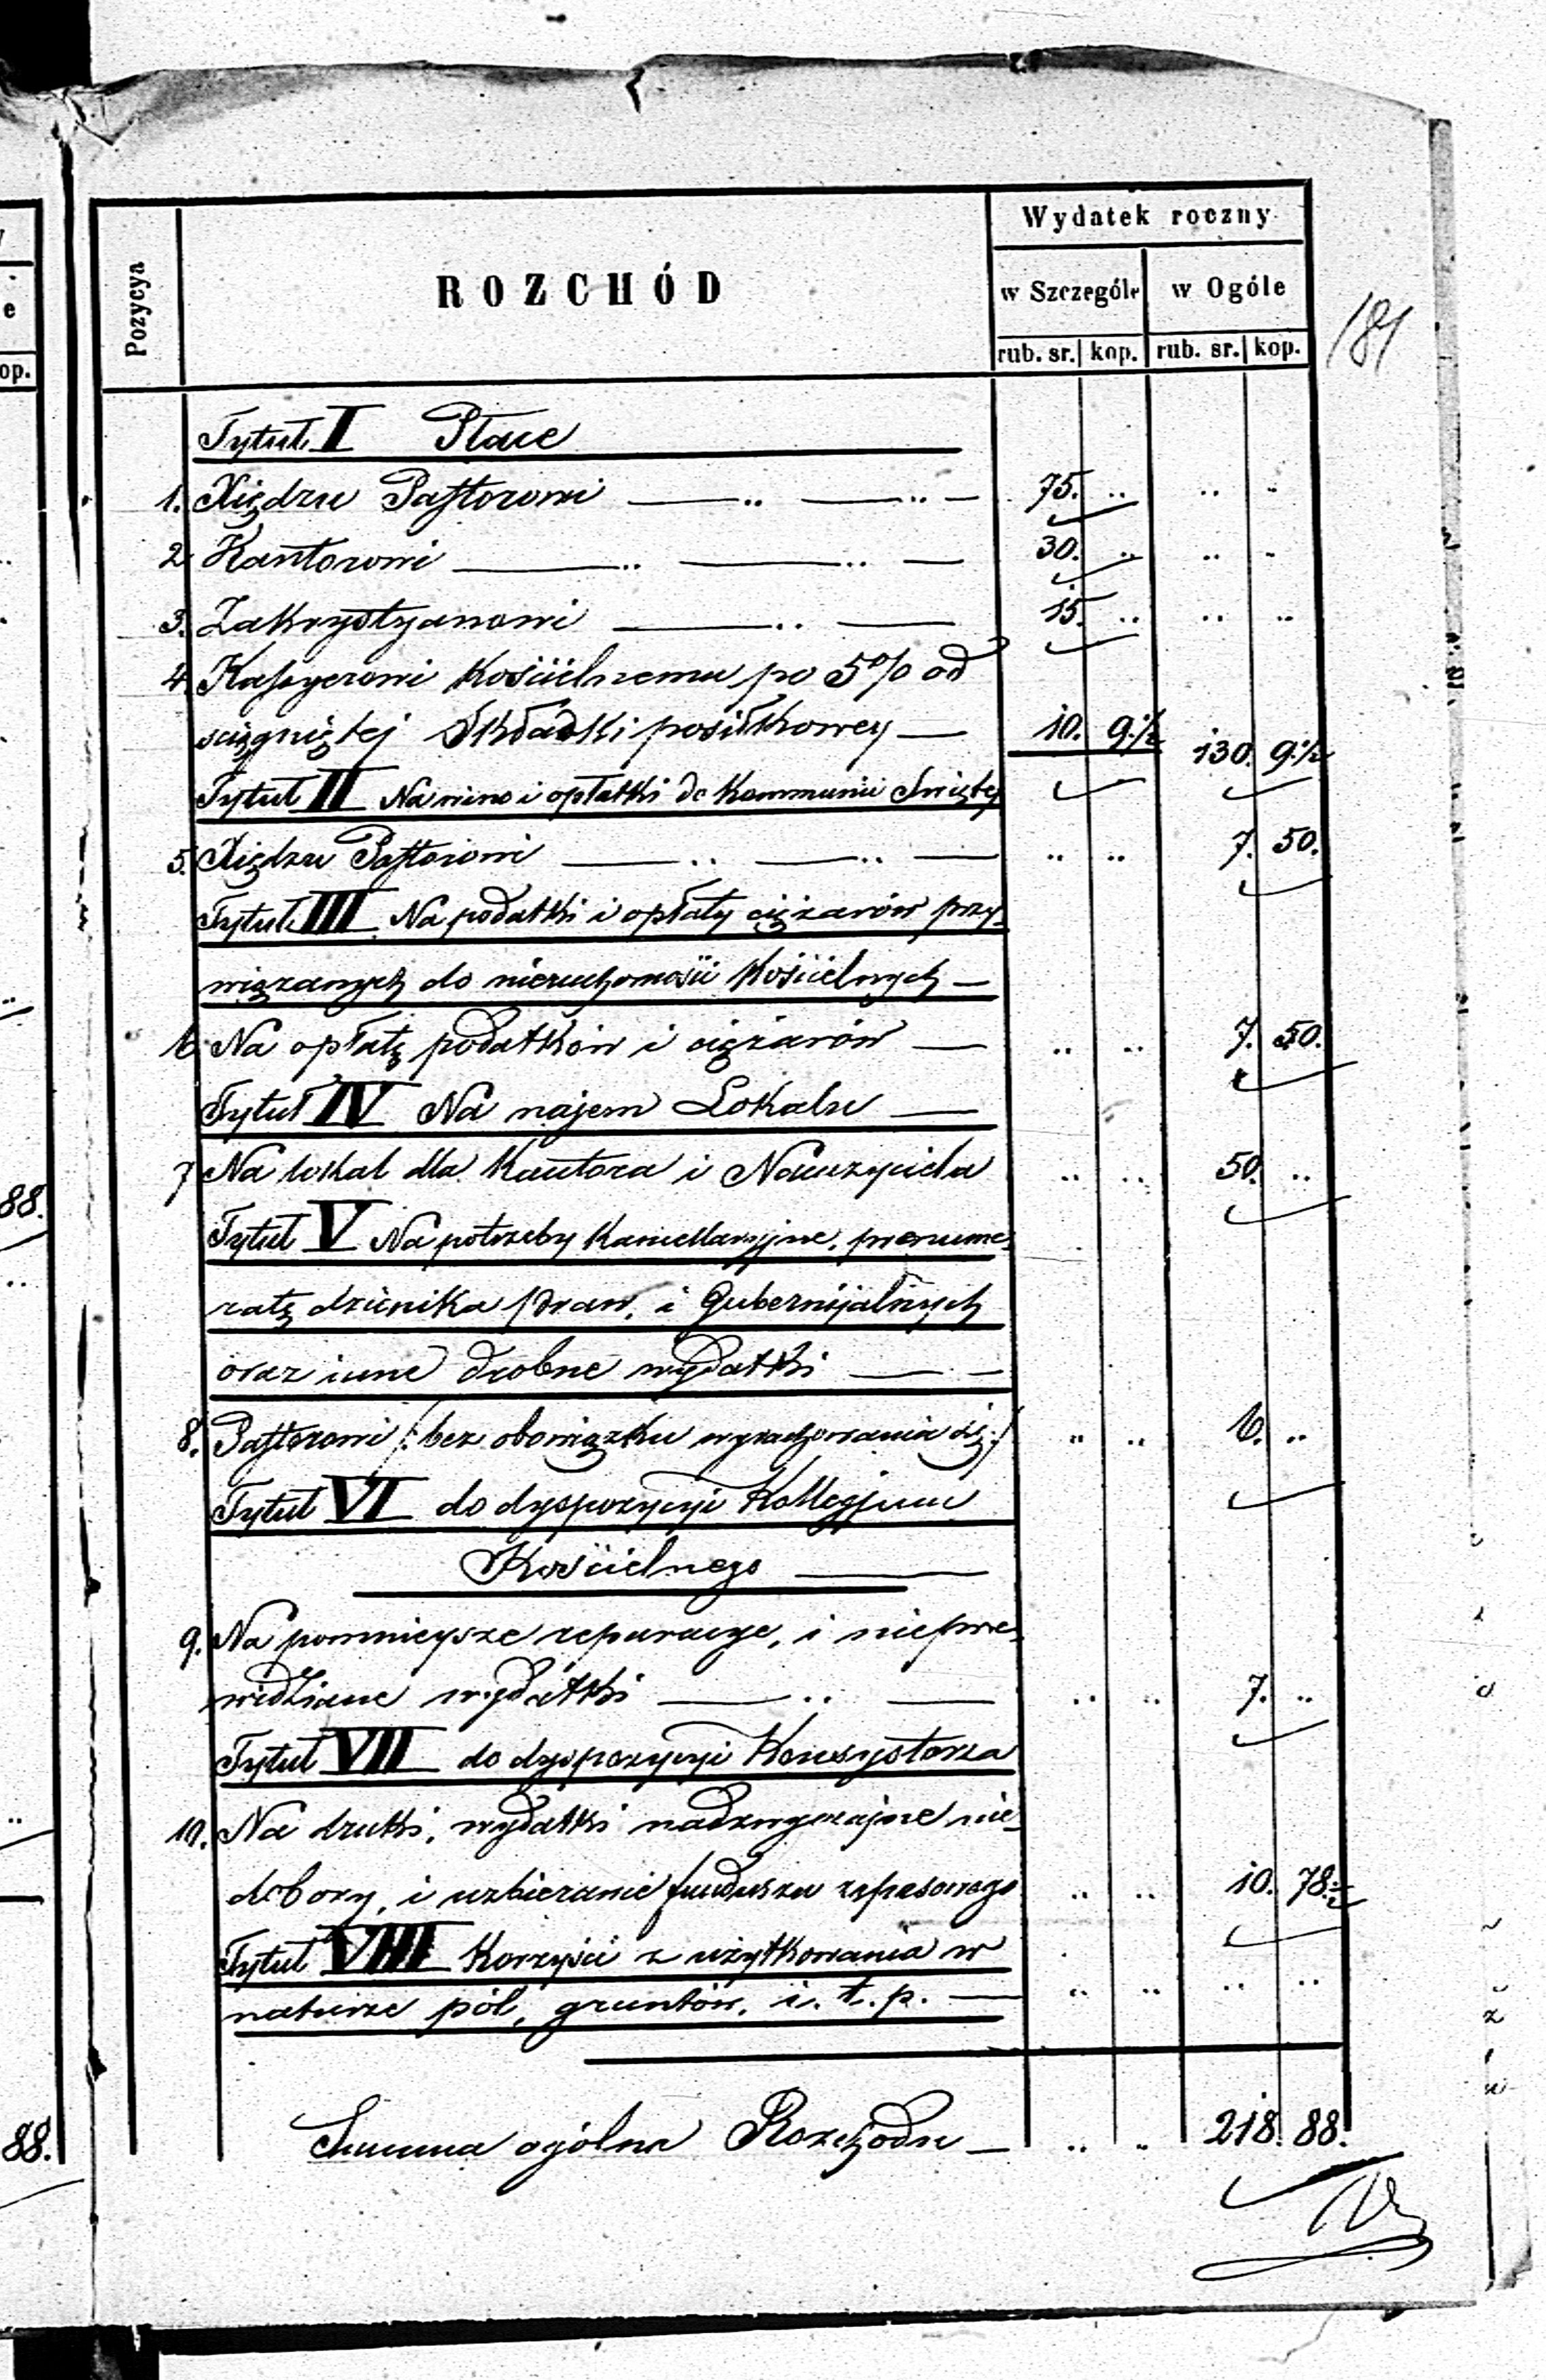 Pozycya
ROZCHÓD
Wydatek roczny
w Szczególe w Ogóle
rub. sr. kop. rub. sr. kop.
181
Tytuł I Płace
1. Xiędzu Pastorowi 75. .. .. ..
2. Kantorowi 30. .. .. ..
3. Zakrystyanowi 15. .. .. ..
4. Kassyerowi Kościelnemu po 5% od
ściągniętej Składki posiłkowey 10. 9.½ 130. 9.½
Tytuł II Na wino i opłatki do Kommunii Swiętey
5. Xiędzu Pastorowi .. .. 7. 50.
Tytuł III Na podatki i opłaty ciężarów przy-
wiązanych do nieruchomości Kościelnych
6. Na opłatę podatków i ciężarów .. .. 7. 50.
Tytuł IV Na najem Lokalu
7 Na lokal dla Kantora i Nauczyciela .. .. 50. ..
Tytuł V Na potrzeby Kancellaryjne, prenume-
ratę dziennika praw, i Gubernijalnych
oraz inne drobne wydatki
8. Pastorowi /: bez obowiązku wyrachowania się :/ .. .. 6. ..
Tytuł VI do dyspozycyi Kollegjum
Kościelnego
9. Na pomnieysze reparacye, i niepre-
widziane wydatki .. .. 7. ..
Tytuł VII do dyspozycyi Konsystorza
10. Na druki, wydatki nadzwyczajne nie-
dobory, i uzbieranie funduszu zapasowego .. .. 10. 78.½
Tytuł VIII Korzyści z użytkowania w
naturze pól, gruntów, i. t. p. .. .. .. ..
Summa ogólna Rozchodu .. .. 218. 88.